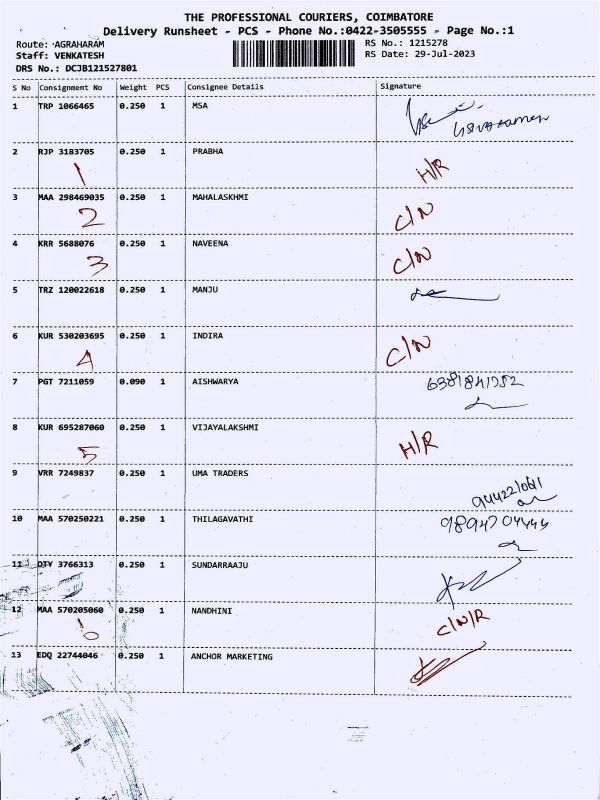 THE PROFESSIONAL COURIERS, COIMBATORE
Delivery Runsheet - PCS - Phone No.:0422-3505555 - Page No.:1
Route: AGRAHARAM RS No.: 1215278
Staff: VENKATESH RS Date: 29-Jul-2023
DRS No.: DCJB121527801
S No Consignment No Weight PCS Consignee Details Signature
1 TRP 1066465 0.250 1 MSA
2 RJP 3183705 0.250 1 PRABHA
1 H/R
3 MAA 298469035 0.250 1 MAHALASKHMI
2 C/N
4 KRR 5688076 0.250 1 NAVEENA
3 C/N
5 TRZ 120022618 0.250 1 MANJU
6 KUR 530203695 0.250 1 INDIRA
4 C/N
7 PGT 7211059 0.090 1 AISHWARYA
8 KUR 695287060 0.250 1 VIJAYALAKSHMI
5 H/R
9 VRR 7249837 0.250 1 UMA TRADERS
10 MAA 570250221 0.250 1 THILAGAVATHI
11 DTY 3766313 0.250 1 SUNDARRAAJU
12 MAA 570205060 0.250 1 NANDHINI
6 C/N/R
13 EDQ 22744046 0.250 1 ANCHOR MARKETING